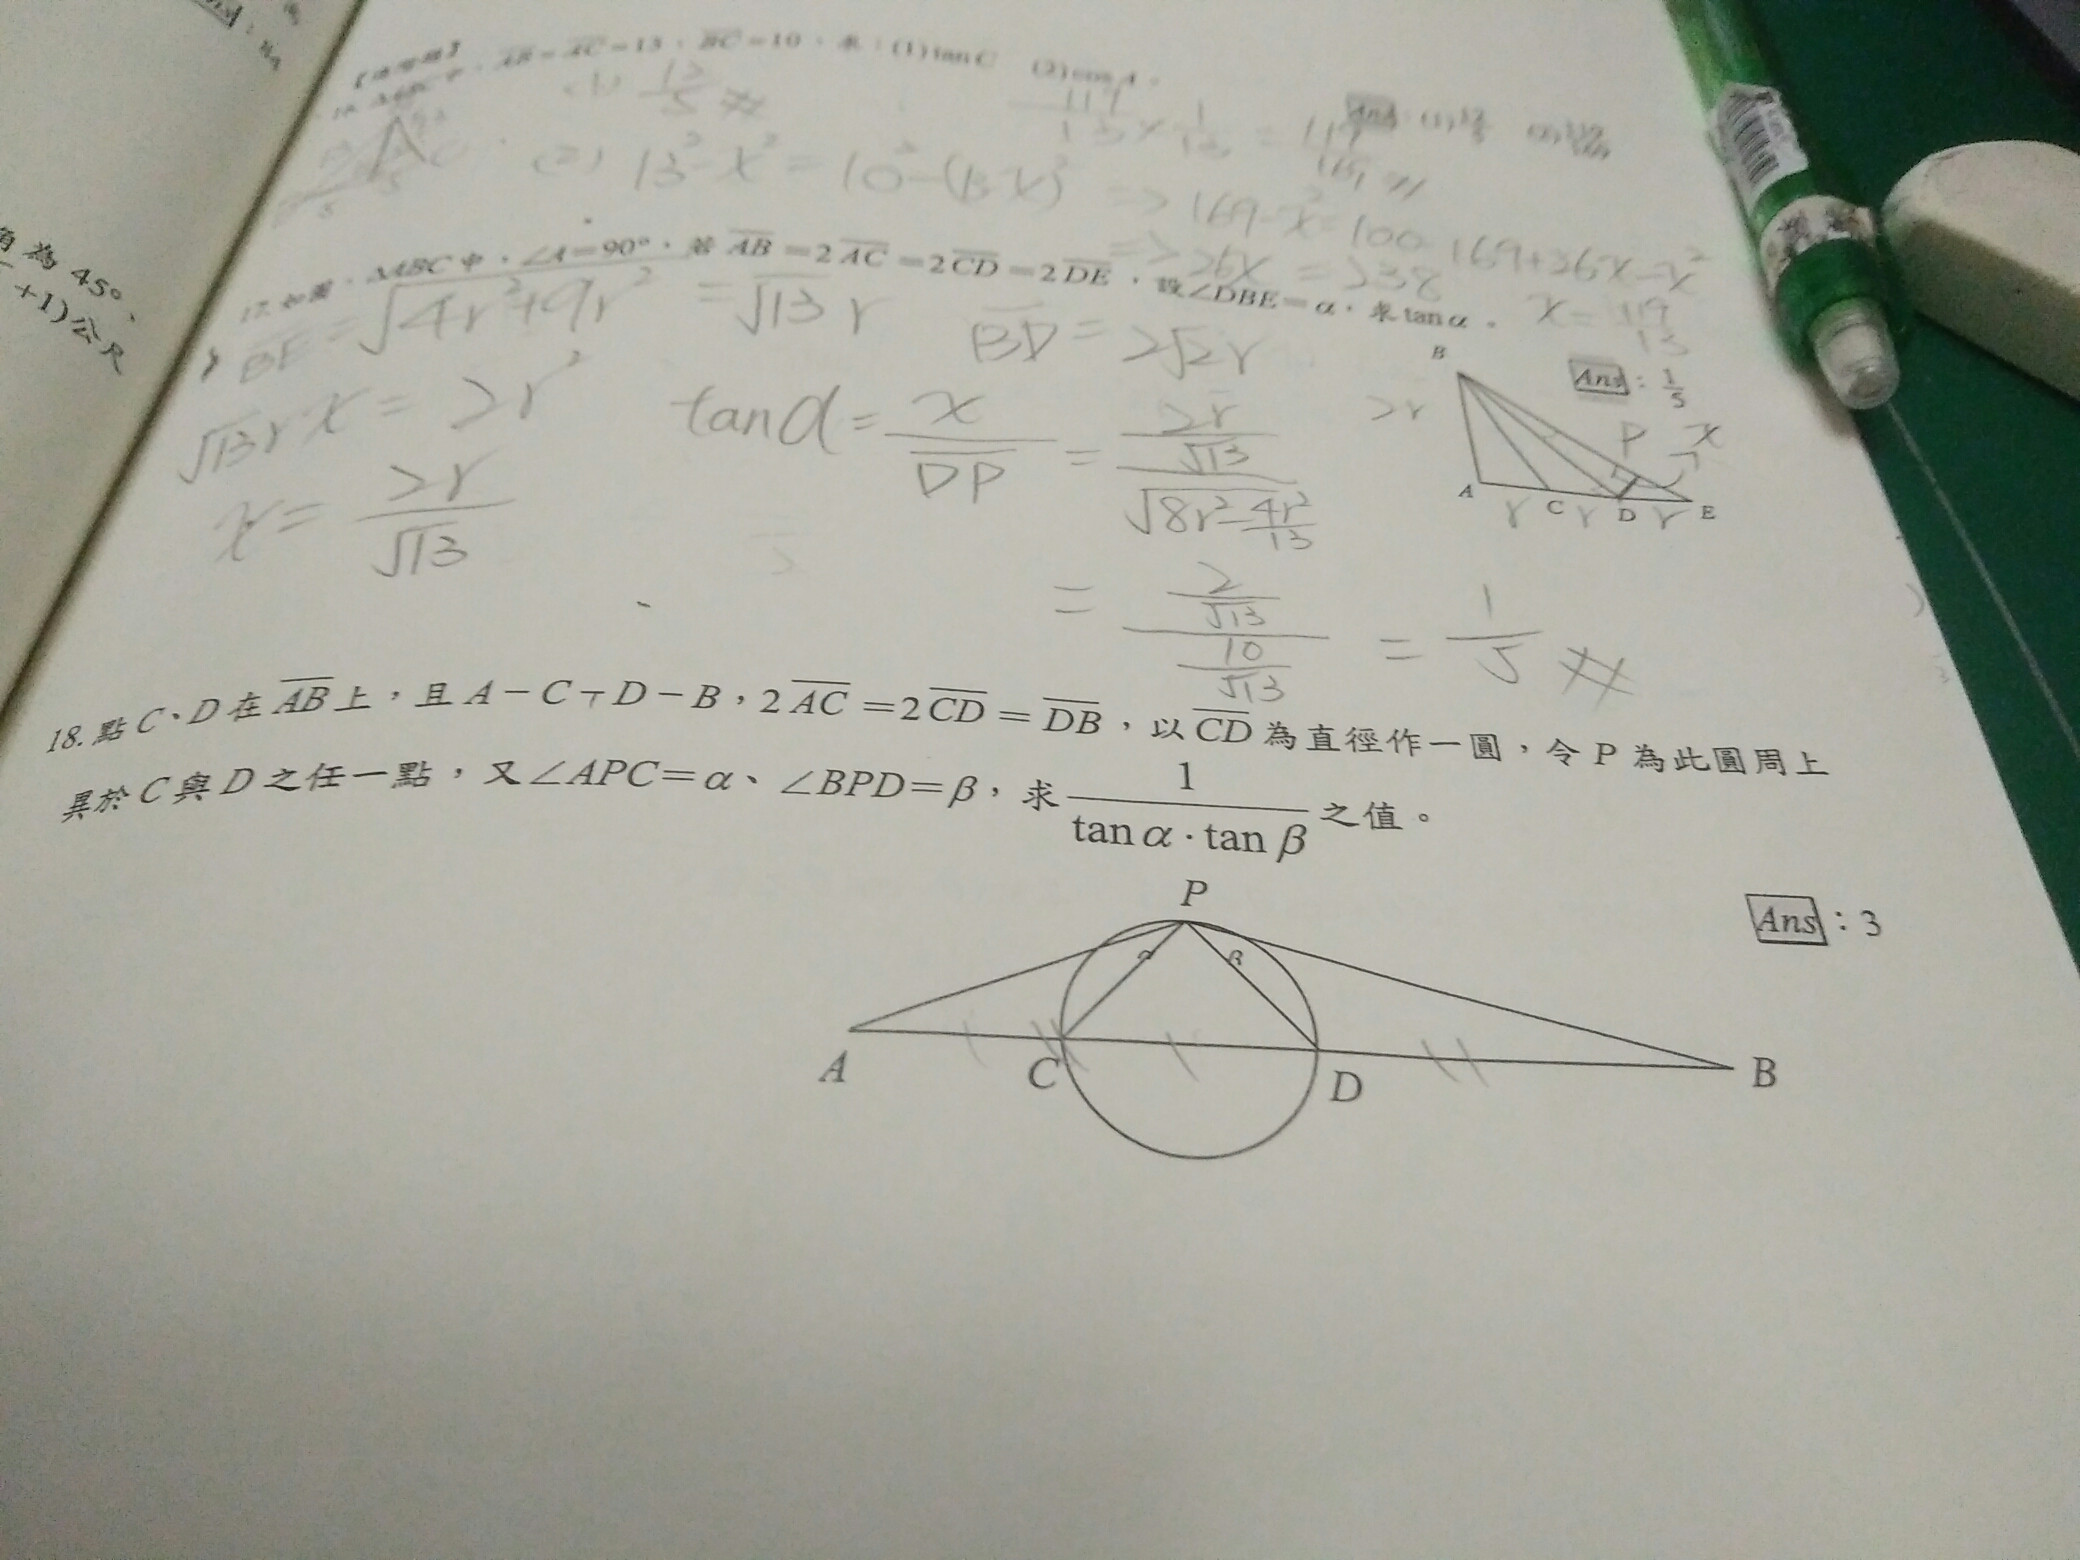 角為 45°、
+1)公尺
AB = AC = 13，BC = 10，求：(1) tan C (2) cos A。
(1) 12/5 #
119/13 × 1/13 = 119/169 #
Ans：(1) 12/5 (2) 119/169
(2) 13² - x² = 10² - (13-x)² => 169 - x² = 100 - 169 + 26x - x²
=> 26x = 238
x = 119/13
17. 如圖，△ABC 中，∠A=90°，若 AB = 2AC = 2CD = 2DE，設∠DBE = α，求 tan α。
BE = √(4r²+9r²) = √13 r
BD = 2√2 r
Ans：1/5
√13 r x = 2r²
tan α = x/DP = (2r/√13)/√(8r² - 4r²/13)
x = 2r/√13
B
2r
P x
A r C r D r E
= (2/√13)/(10/√13) = 1/5 #
18. 點 C、D 在 AB 上，且 A－C－D－B，2AC = 2CD = DB，以 CD 為直徑作一圓，令 P 為此圓周上
異於 C 與 D 之任一點，又∠APC = α、∠BPD = β，求 1/(tan α · tan β) 之值。
Ans：3
P
α β
A C D B